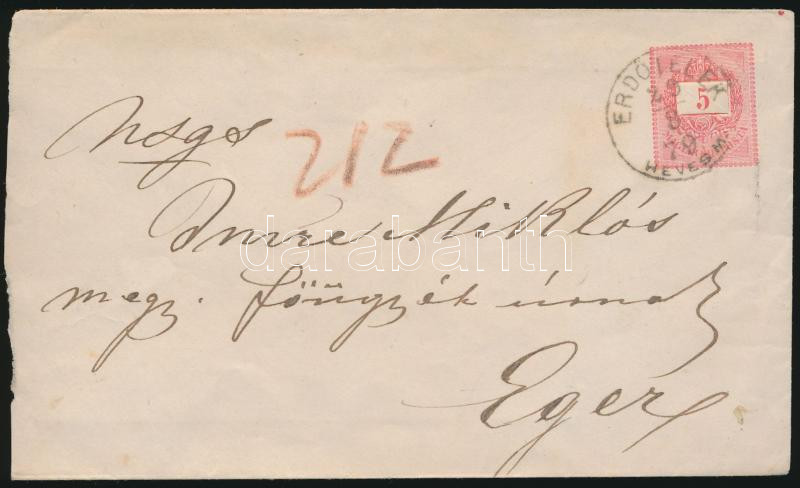 ERDŐTELEK
5
HEVES M.
Nsgs
212
Imre Miklós
darabanth
megy. főügyék úrnak
Eger